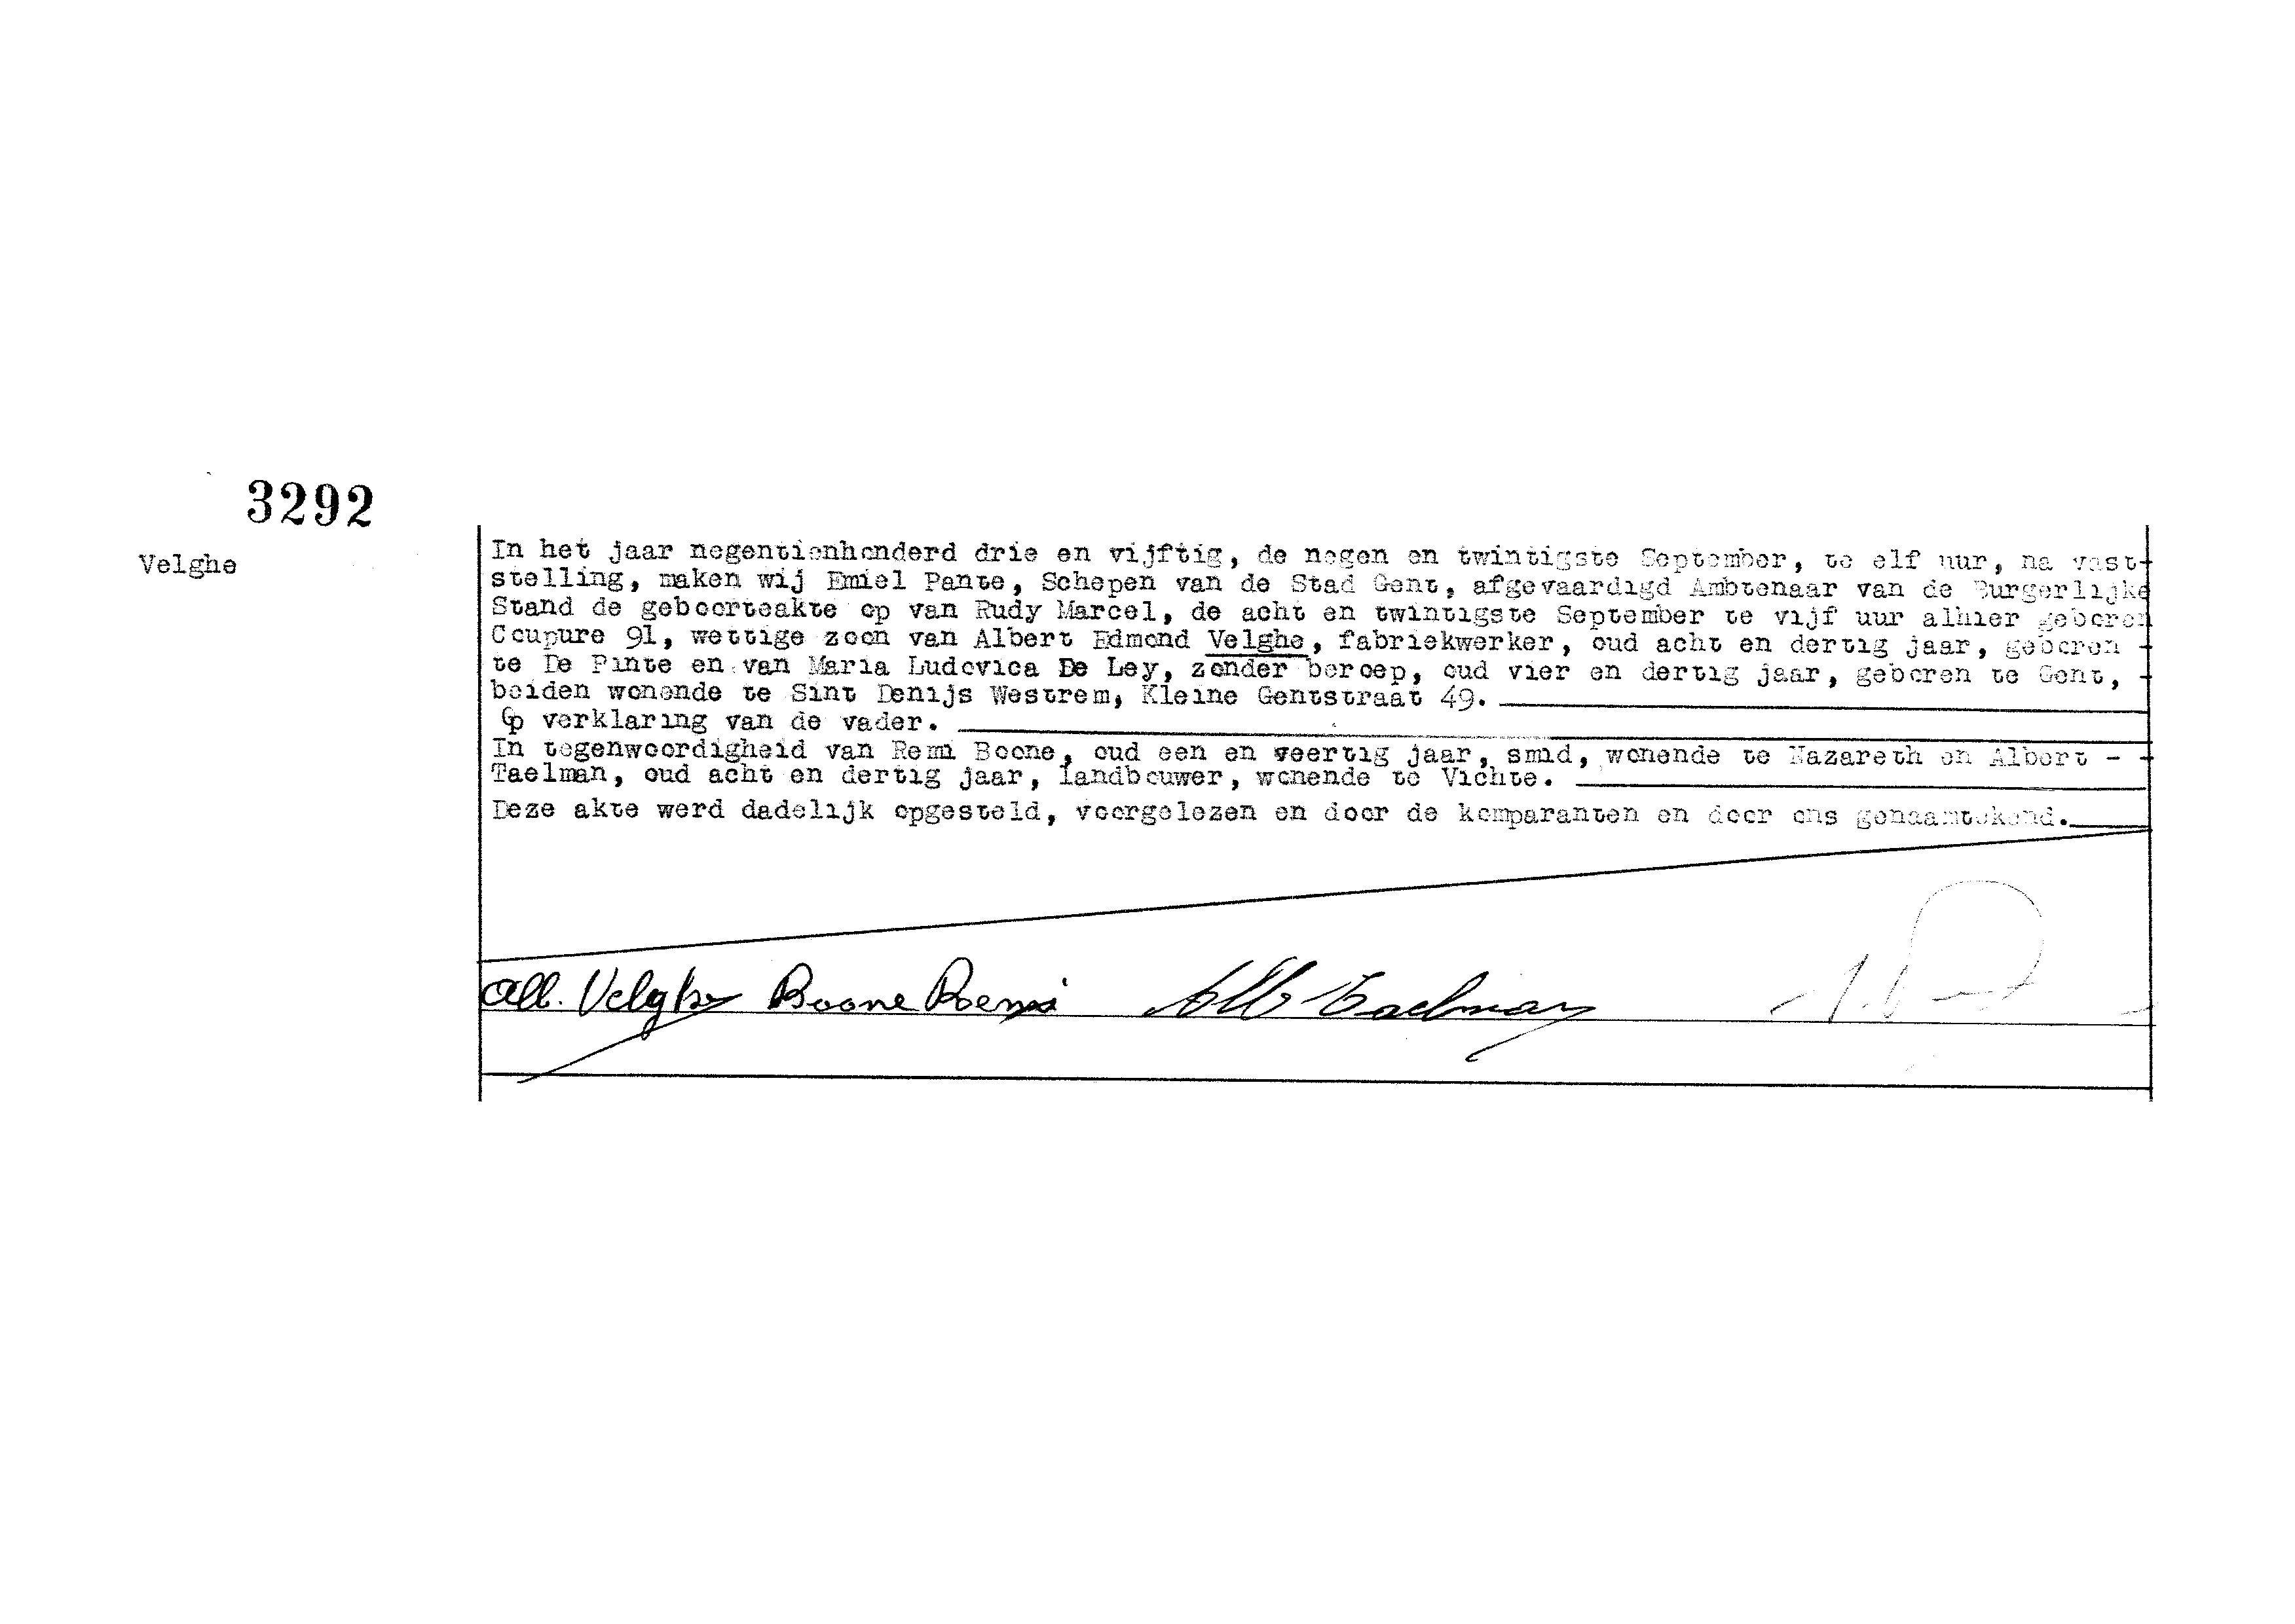 3292
Velghe
In het jaar negentienhonderd drie en vijftig, de negen en twintigste September, te elf uur, na vast-
stelling, maken wij Emiel Pante, Schepen van de Stad Gent, afgevaardigd Ambtenaar van de Burgerlijke
Stand de geboorteakte op van Rudy Marcel, de acht en twintigste September te vijf uur alhier geboren
Coupure 91, wettige zoon van Albert Edmond Velghe, fabriekwerker, oud acht en dertig jaar, geboren -
te De Pinte en van Maria Ludovica De Ley, zonder beroep, oud vier en dertig jaar, geboren te Gent, -
beiden wonende te Sint Denijs Westrem, Kleine Gentstraat 49.
Op verklaring van de vader.
In tegenwoordigheid van Remi Boone, oud een en veertig jaar, smid, wonende te Nazareth en Albert - -
Taelman, oud acht en dertig jaar, landbouwer, wonende te Vichte.
Deze akte werd dadelijk opgesteld, voorgelezen en door de komparanten en door ons genaamtekend.
Alb. Velghe Boone Remi Alb Taelman